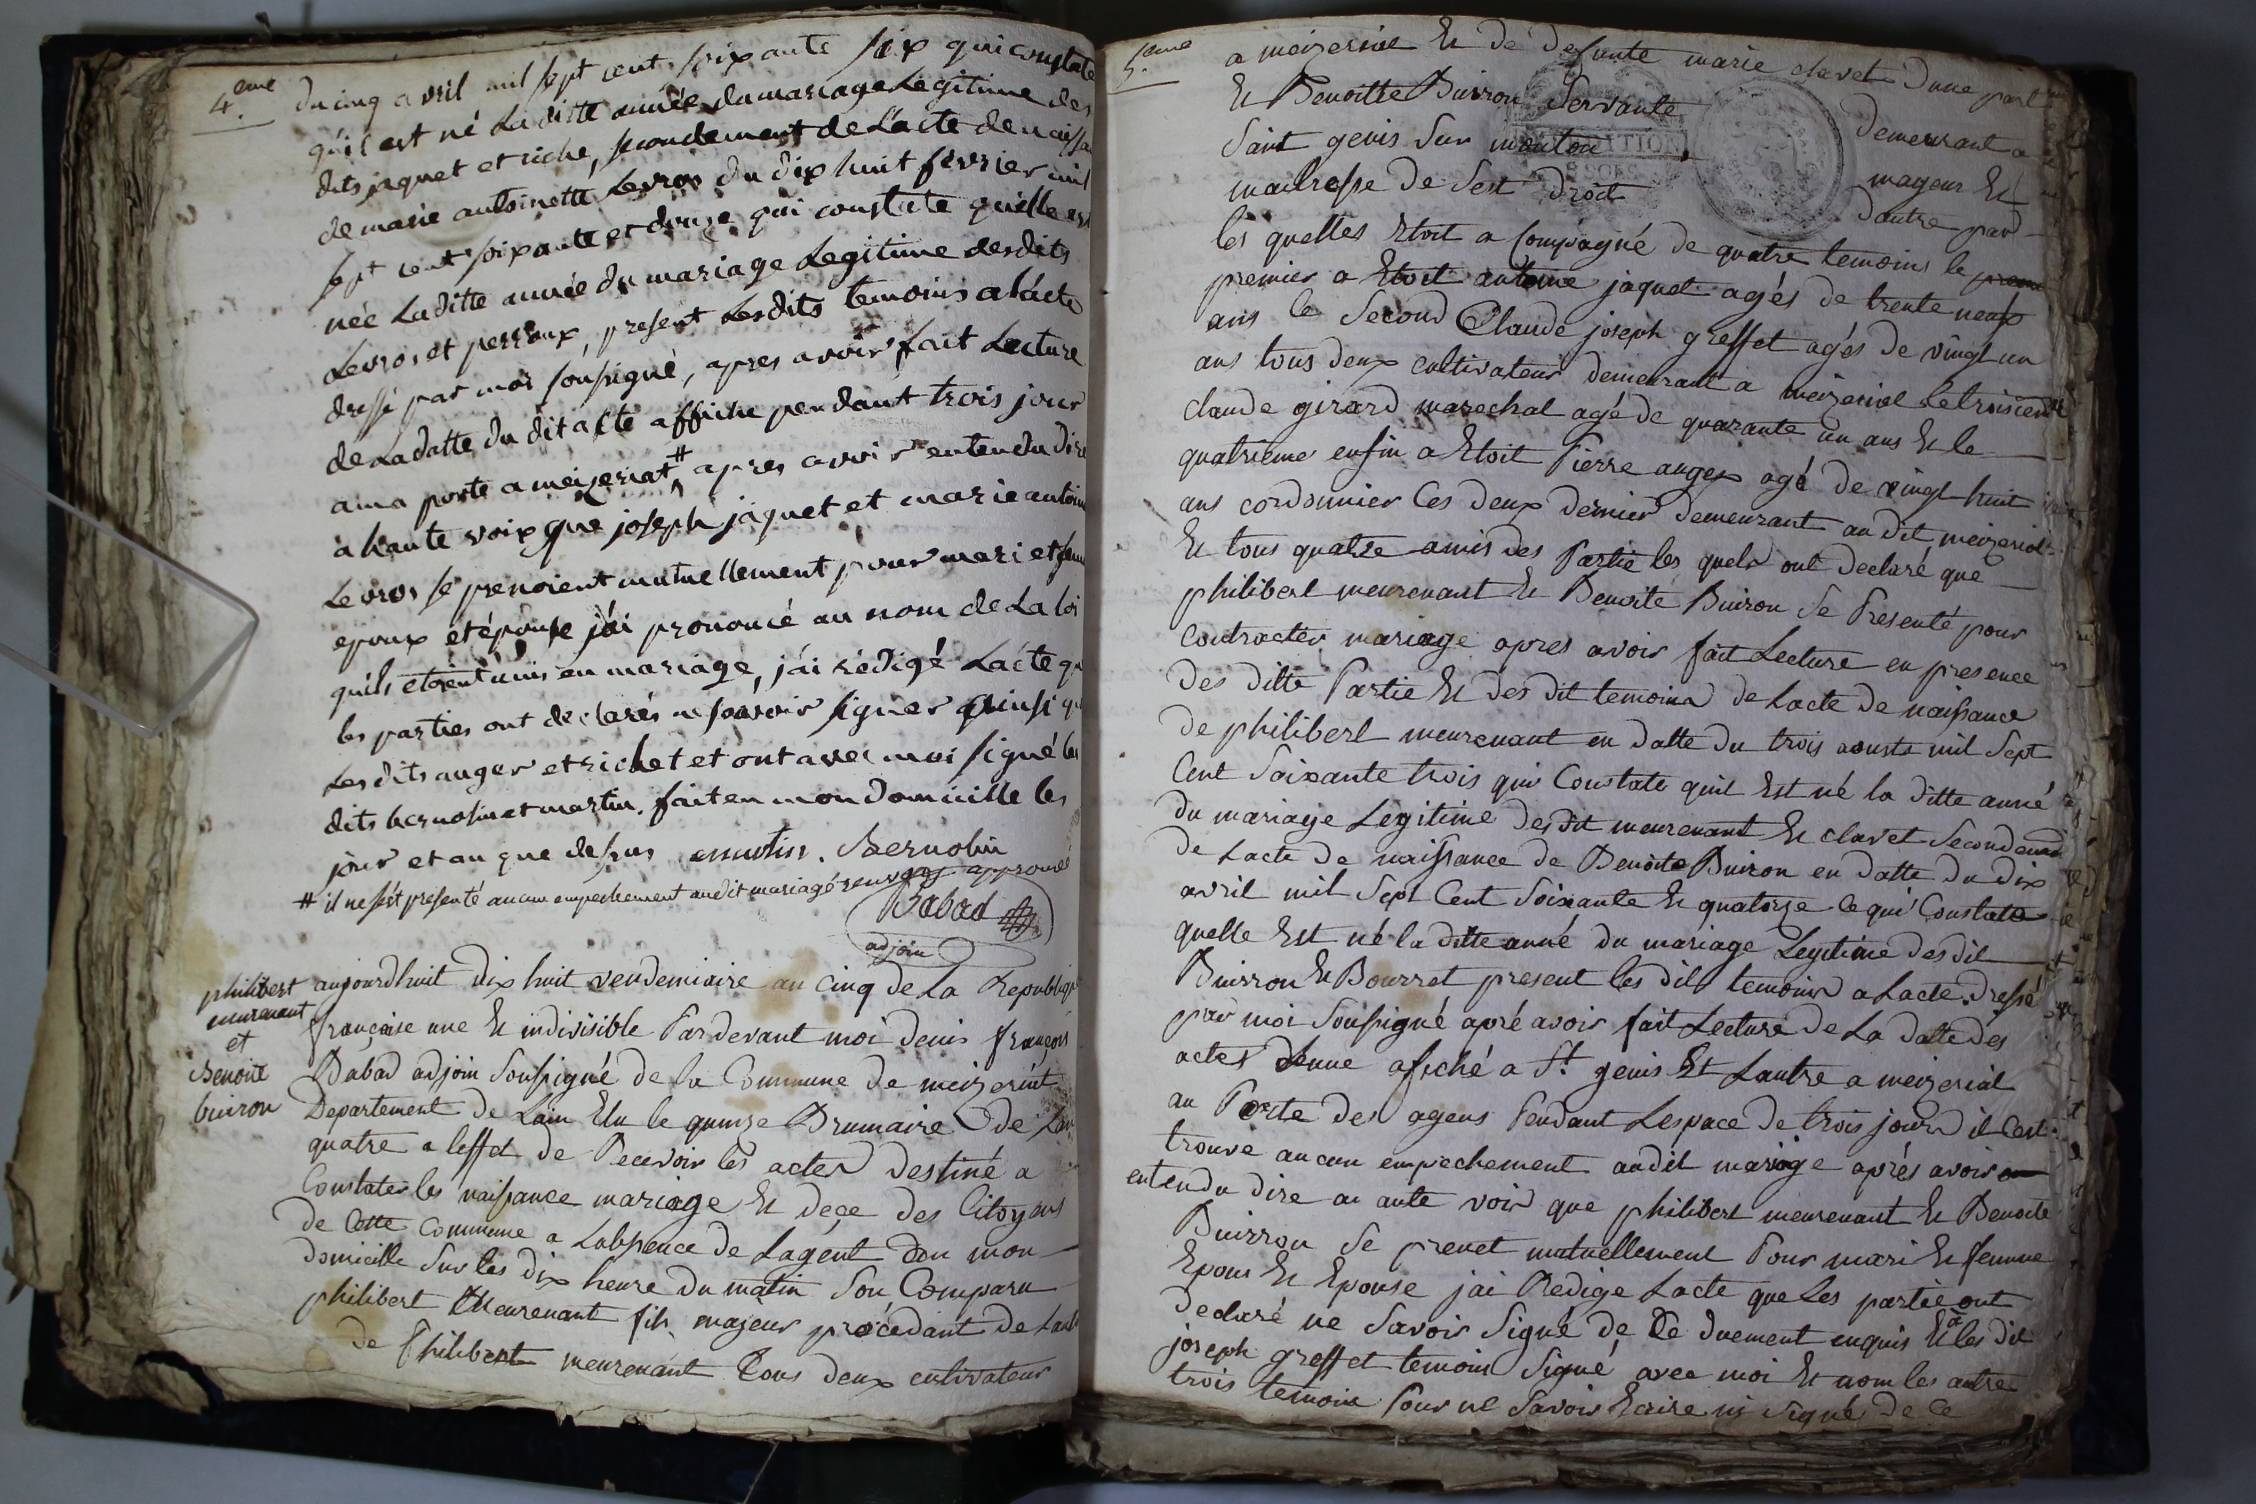 4.eme
du cinq avril mil sept cent soixante six qui constate
qu'il est né Laditte année du mariage Legitime des
dits jaquet et riche, secondement de L'acte de naissa
de marie antoinette Levros du dix huit février mil
sept cent soixante et douze qui constate qu'elle est
née Laditte année du mariage Legitime desdits
Levros et perroux, present Lesdits temoins a Lacte
dressé par moi soussigné, apres avoir fait Lecture
de Ladatte du dit acte affiché pendant trois jour
a ma porte a meizeriat # apres avoir entendu dire
a haute voix que joseph jaquet et marie antoin
Levros se prenoient mutuellement pour mari et femm
epoux et épouse j'ai prononcé au nom de La loi
qu'ils etoient unis en mariage, j'ai rédigé Lacte qu
les parties ont declarés ne scavoir signer ainsi qu
Lesdits auger et richet et ont avec moi signé les
dits bernolin et martin. fait en mon domicille les
jour et an que dessus martin. Bernolin
# il ne s'est présenté aucun empechement audit mariage renvoy approuvé
Babad
adjoin
philibert
meurenant
et
Benoite
buiron
aujourdhuit dix huit vendemiaire an cinq de La Republiqu
françoise une Et indivisible Pardevant moi denis françois
Babad adjoin Soussigné de la Commune de meizeriat
Departement de Lain Elu le quinze Brumaire de Lan
quatre a leffet de Recevoir les actes destiné a
Constater les naissance mariage Et deçe des Citoyens
de Cette commune a Labssence de Lagent dan mon
domicille Sur les dix heure du matin Son Comparu
philibert Meurenant fils majeur procédant de Lauto
de Philibert meurenant Tous deux cultivateur
5.eme
a meizeriat Et de defunte marie clavet dune part
Et Benoitte Buirron Servante demeurant a
Saint genis Sur mouton mageur Et
maitresse de Sest droit dautre pard
les quelles Etoit a Compagné de quatre temoins le prem
premier a Etoit antoine jaquet agés de trente neuf
ans le Second Claude joseph greffet agés de vingt un
ans tous deux cultivateur demeurant a meizeriat Letroisieme
claude girard marechal agé de quarante un ans Et le
quatrieme enfin a Etoit Pierre auger agé de vingt huit
ans cordonnier Ces deux dernier demeurant au dit meizeriat
Et tous quatre amis des Partie les quels ont declaré que
philibert meurenant Et Benoite Buiron Se Presenté pour
contracter mariage apres avoir fait Lecture en presence
des ditte Partie Et des dit temoins de Lacte de naissance
de philibert meurenant en datte du trois aousts mil Sept
Cent Soixante trois qui Constate quil Est né la ditte anné
du mariage Legitime des dit meurenant Et clavet Secondement
de Lacte de naissance de Benoite Buiron en datte du dix
avril mil Sept Cent Soixante Et quatorze Ce qui Constate
quelle Est né la ditte anné du mariage Legitime des dit
Buirron Et Bourret present les dit temoins a Lacte dressé
par moi Soussigné apré avoir fait Lecture de La datte des
actes dune afiché a St. genis Et Lautre a meizeriat
au Porte des agens Pendant Lespace de trois jours il Cest
trouve aucun empechement audit mariage aprés avoir
entendu dire au aute voix que philibert meurenant Et Benoite
Buirron Se prenet mutuellement Pour mari Et femme
Epous Et Epouse jai Redige Lacte que Les partie ont
declaré ne Savoir Signé de Ce duement enquis Et a les dit
joseph greffet temoin Signé avec moi Et nom les autre
trois temoins Pour ne Savoir Ecrire ni Signé de Ce